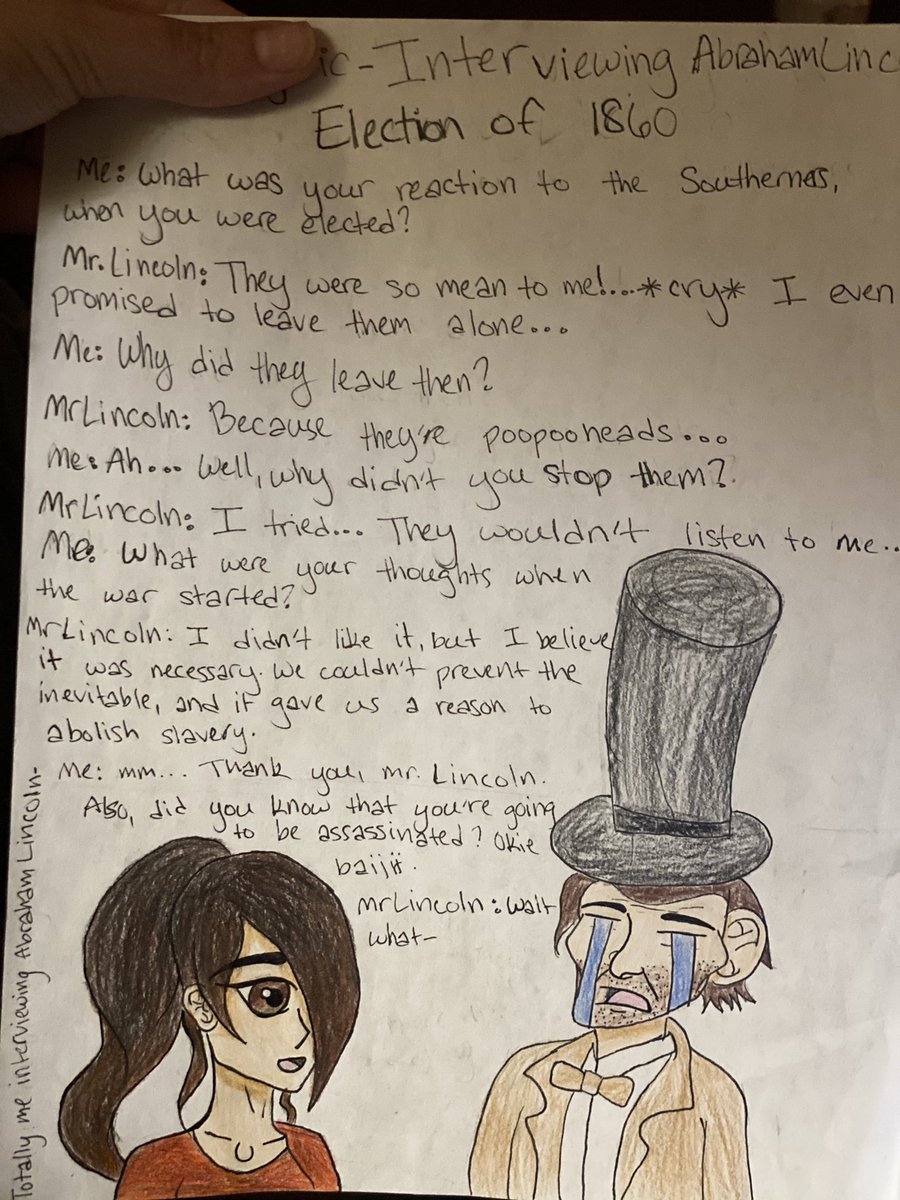 ic - Interviewing Abraham Linc
Election of 1860
Me: What was your reaction to the Southerners,
when you were elected?
Mr. Lincoln: They were so mean to me!...*cry* I even
promised to leave them alone...
Me: Why did they leave then?
Mr Lincoln: Because they're poopooheads...
Me: Ah... Well, why didn't you stop them?
Mr Lincoln: I tried... They wouldn't listen to me..
Me: What were your thoughts when
the war started?
Mr Lincoln: I didn't like it, but I believe
it was necessary. We couldn't prevent the
inevitable, and it gave us a reason to
abolish slavery.
Me: mm... Thank you, mr. Lincoln.
Also, did you know that you're going
to be assassinated? Okie
baiji.
mr Lincoln: wait
what-
Totally me interviewing Abraham Lincoln-